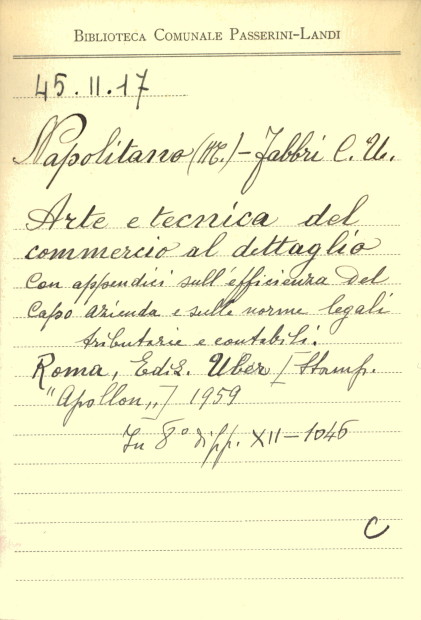 BIBLIOTECA COMUNALE PASSERINI-LANDI
45.II.17
Napolitano (M.) - Fabbri C. U.
Arte e tecnica del
commercio al dettaglio
Con appendici sull'efficienza del
Capo azienda e sulle norme legali
tributarie e contabili.
Roma, Ediz. Uber [Stamp.
"Apollon„] 1959
In 8° di pp. XII - 1046
C